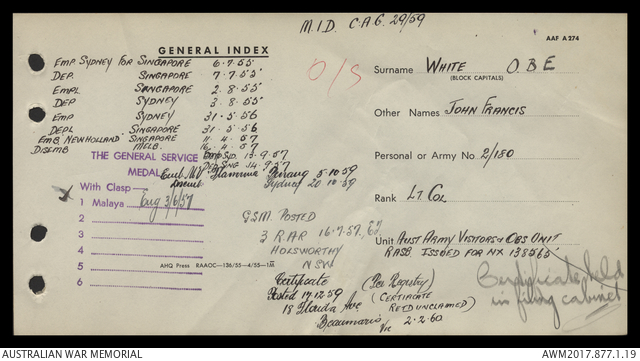 M.I.D. C.A.G. 29/59
AAF A 274
GENERAL INDEX
EMP SYDNEY FOR SINGAPORE 6.7.55
DEP. SINGAPORE 7.7.55
EMPL SINGAPORE 2.8.55
DEP SYDNEY 3.8.55
EMP SYDNEY 31.5.56
DEPL SINGAPORE 31.5.56
EMB. NEW HOLLAND SINGAPORE 11.4.57
DISEMB MELB. 16.4.57
O/S
Surname WHITE O.B.E
(BLOCK CAPITALS)
Other Names JOHN FRANCIS
Personal or Army No. 2/180
Rank LT. COL
Unit AUST ARMY VISITORS & OBS UNIT
RASB. ISSUED FOR NX 138565
THE GENERAL SERVICE MEDAL
EMP SYD. 13.9.57
DEP SNG 14.9.57
Emb MV Flaminia Penang 5.10.59
Sydney 20.10.59
With Clasp
1 Malaya Eng 3/6/57
2
3
4
5
6
G.S.M. POSTED
3 RAR 16.7.57
HOLSWORTHY
NSW
AHQ Press RAAOC—136/55—4/55—1M
Certificate (Per Registry)
Posted 17.12.59 (CERTIFICATE
18 Florida Ave RETD UNCLAIMED)
Beaumaris Vic 2.2.60
Certificate held
in filing cabinet
AUSTRALIAN WAR MEMORIAL
AWM2017.877.1.19